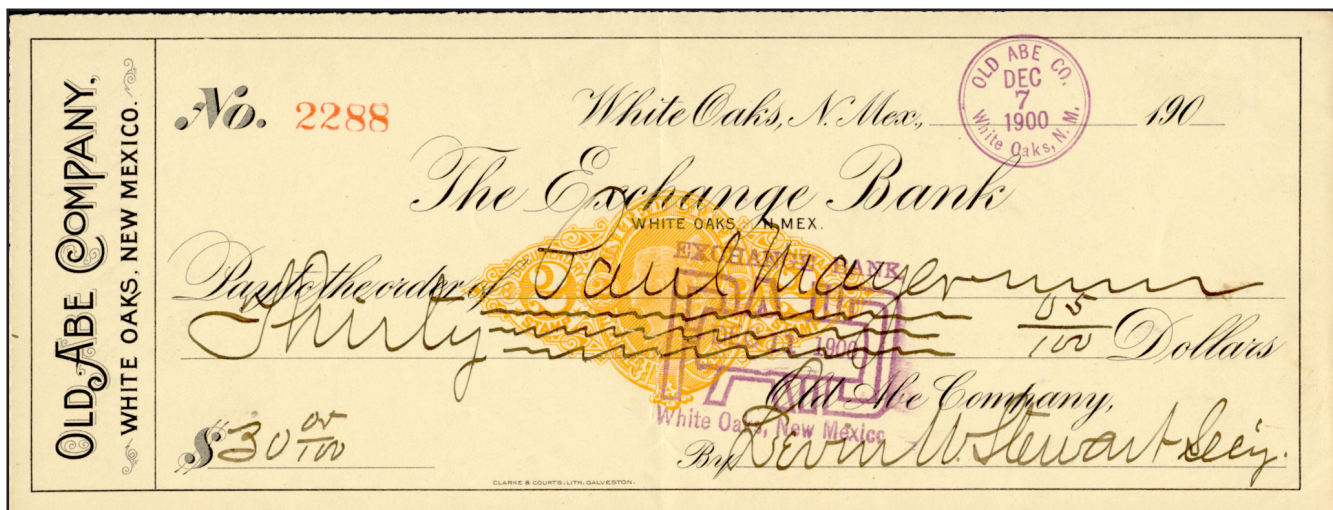 OLD ABE COMPANY,
WHITE OAKS, NEW MEXICO.
No. 2288
White Oaks, N. Mex., 190
OLD ABE CO.
DEC
7
1900
White Oaks, N.M.
The Exchange Bank
WHITE OAKS, N. MEX.
Pay to the order of Paul Mayer
Thirty 05/100 Dollars
EXCHANGE BANK
PAID
1900
White Oaks, New Mexico
Old Abe Company,
$30 05/100
By W. Stewart Secy.
CLARKE & COURTS, LITH. GALVESTON.